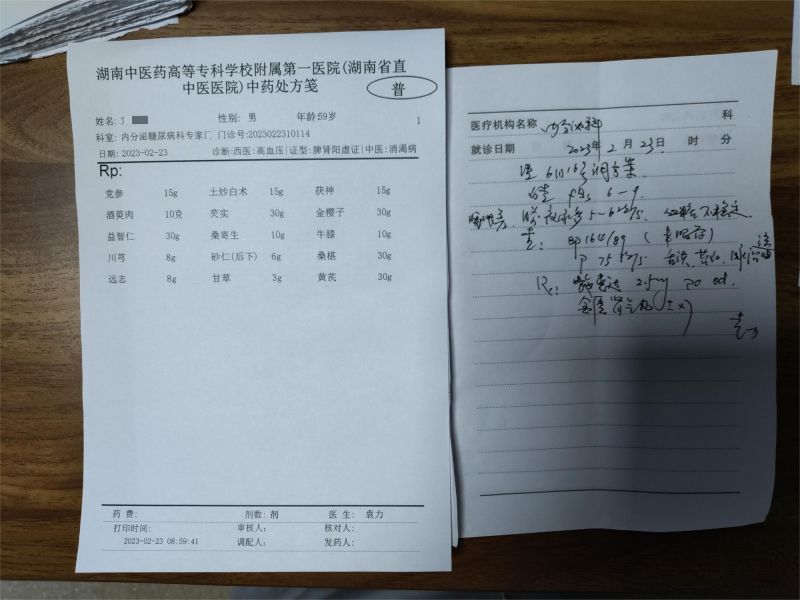 湖南中医药高等专科学校附属第一医院(湖南省直
中医医院)中药处方笺
普
姓名: 性别: 男 年龄:59岁 1
科室: 内分泌糖尿病科专家门 门诊号:2023022310114
日期: 2023-02-23 诊断:西医:高血压|证型:脾肾阳虚证|中医:消渴病
Rp:
党参 15g 土炒白术 15g 茯神 15g
酒萸肉 10克 芡实 30g 金樱子 30g
益智仁 30g 桑寄生 10g 牛膝 10g
川芎 8g 砂仁(后下) 6g 桑椹 30g
远志 8g 甘草 3g 黄芪 30g
药 费: 剂数: 剂 医 生: 袁力
打印时间: 审核人: 核对人:
2023-02-23 08:59:41 调配人: 发药人:
医疗机构名称 内分泌科 科
就诊日期 2023年 2 月 23日 时 分
6-9
5-6
BP 164/89
P 75
2.5mg po qd.
金匮肾气丸